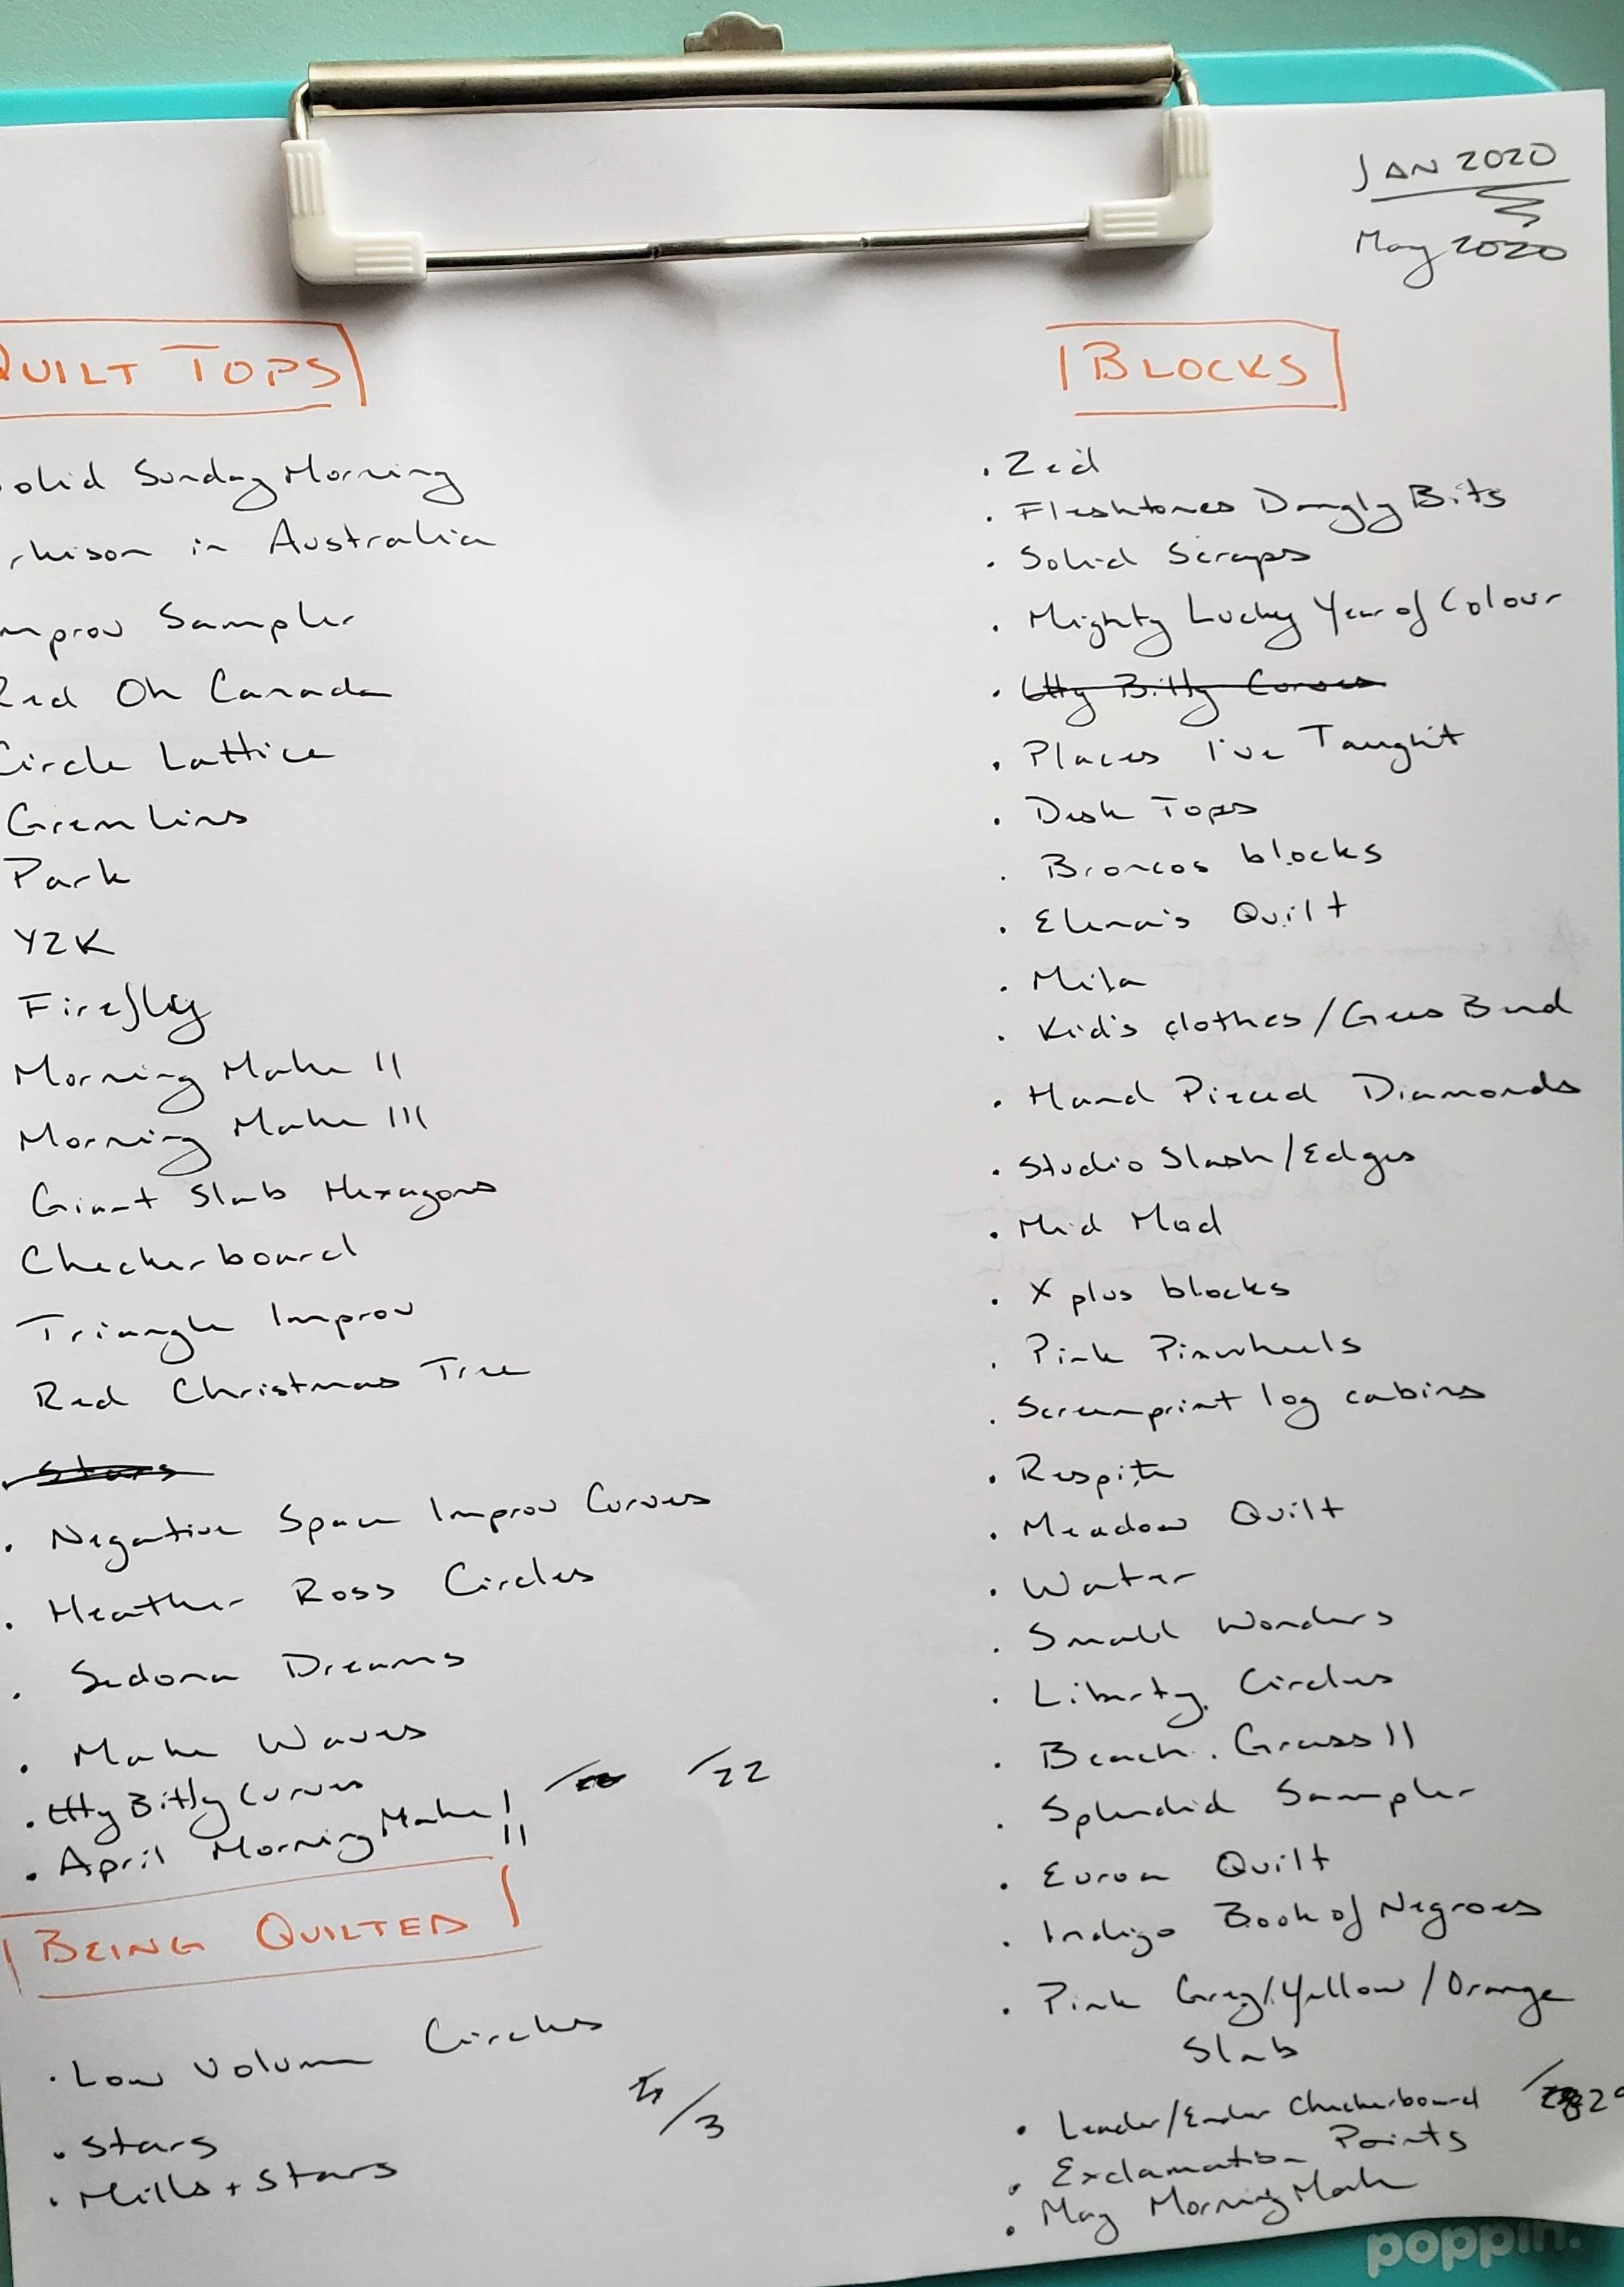 JAN 2020
May 2020
QUILT TOPS
olid Sunday Morning
rkison in Australia
mprov Sampler
Red Oh Canada
Circle Lattice
Gremlins
Park
Y2K
Firefly
Morning Make II
Morning Make III
Giant Slab Hexagons
Checkerboard
Triangle Improv
Red Christmas Tree
Stars
. Negative Space Improv Curves
. Heather Ross Circles
. Sedona Dreams
. Make Waves
. Itty Bitty Curves
/22
. April Morning Make I
II
BEING QUILTED
. Low Volume Circles
. Stars
/3
. Mills + Stars
BLOCKS
. Zed
. Fleshtones Dangly Bits
. Solid Scraps
. Mighty Lucky Year of Colour
. Itty Bitty Curves
. Places I've Taught
. Desk Tops
. Broncos blocks
. Elena's Quilt
. Mila
. Kid's clothes/Gees Bend
. Hand Pieced Diamonds
. Studio Slash/Edges
. Mid Mod
. X plus blocks
. Pink Pinwheels
. Screenprint log cabins
. Respite
. Meadow Quilt
. Water
. Small Wonders
. Liberty Circles
. Beach Grass II
. Splendid Sampler
. Euroa Quilt
. Indigo Book of Negroes
. Pink Grey/Yellow/Orange
Slab
. Leader/Ender Checkerboard
. Exclamation Points
. May Morning Make
poppin.